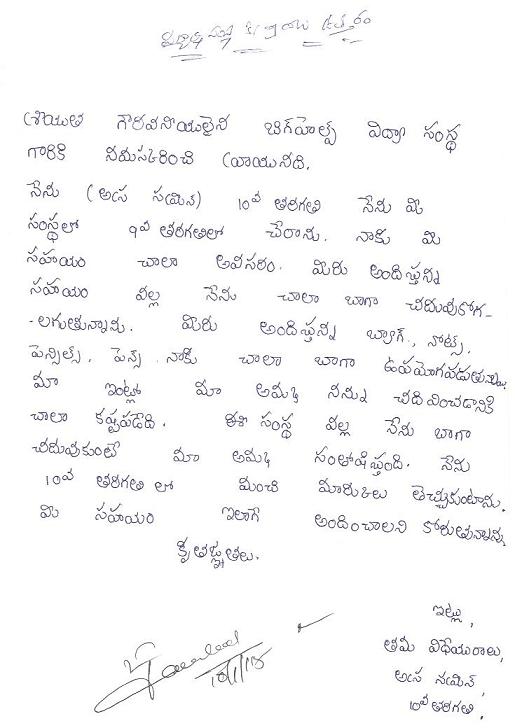 విద్యా సంస్థ కు వ్రాయు ఉత్తరం
శ్రీయుత గౌరవనీయులైన బిగ్‌హెల్ప్ విద్యా సంస్థ
గారికి నమస్కరించి వ్రాయునది.
నేను (అస నమిన) 10వ తరగతి నేను మీ
సంస్థలో 9వ తరగతిలో చేరాను. నాకు మీ
సహాయం చాలా అవసరం. మీరు అందిస్తున్న
సహాయం వల్ల నేను చాలా బాగా చదువుకోగ-
-లగుతున్నాను. మీరు అందిస్తున్న బ్యాగ్, నోట్స్,
పెన్సిల్స్, పెన్స్ నాకు చాలా బాగా ఉపయోగపడుతున్నాయి.
మా ఇంట్లో మా అమ్మ నన్ను చదివించడానికి
చాలా కష్టపడేది. ఈ సంస్థ వల్ల నేను బాగా
చదువుకుంటే మా అమ్మ సంతోషిస్తుంది. నేను
10వ తరగతి లో మంచి మార్కులు తెచ్చుకుంటాను.
మీ సహాయం ఇలాగే అందించాలని కోరుతున్నాను
కృతజ్ఞతలు.
ఇట్లు,
తమ విధేయురాలు,
అస నమిన,
10వ తరగతి.